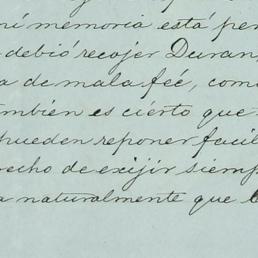 mi memoria está per
debió recojer Duran
a de mala feé, como
ambién es ciérto que
pueden reponer facil
recho de exijir siemp
a naturalmente que l